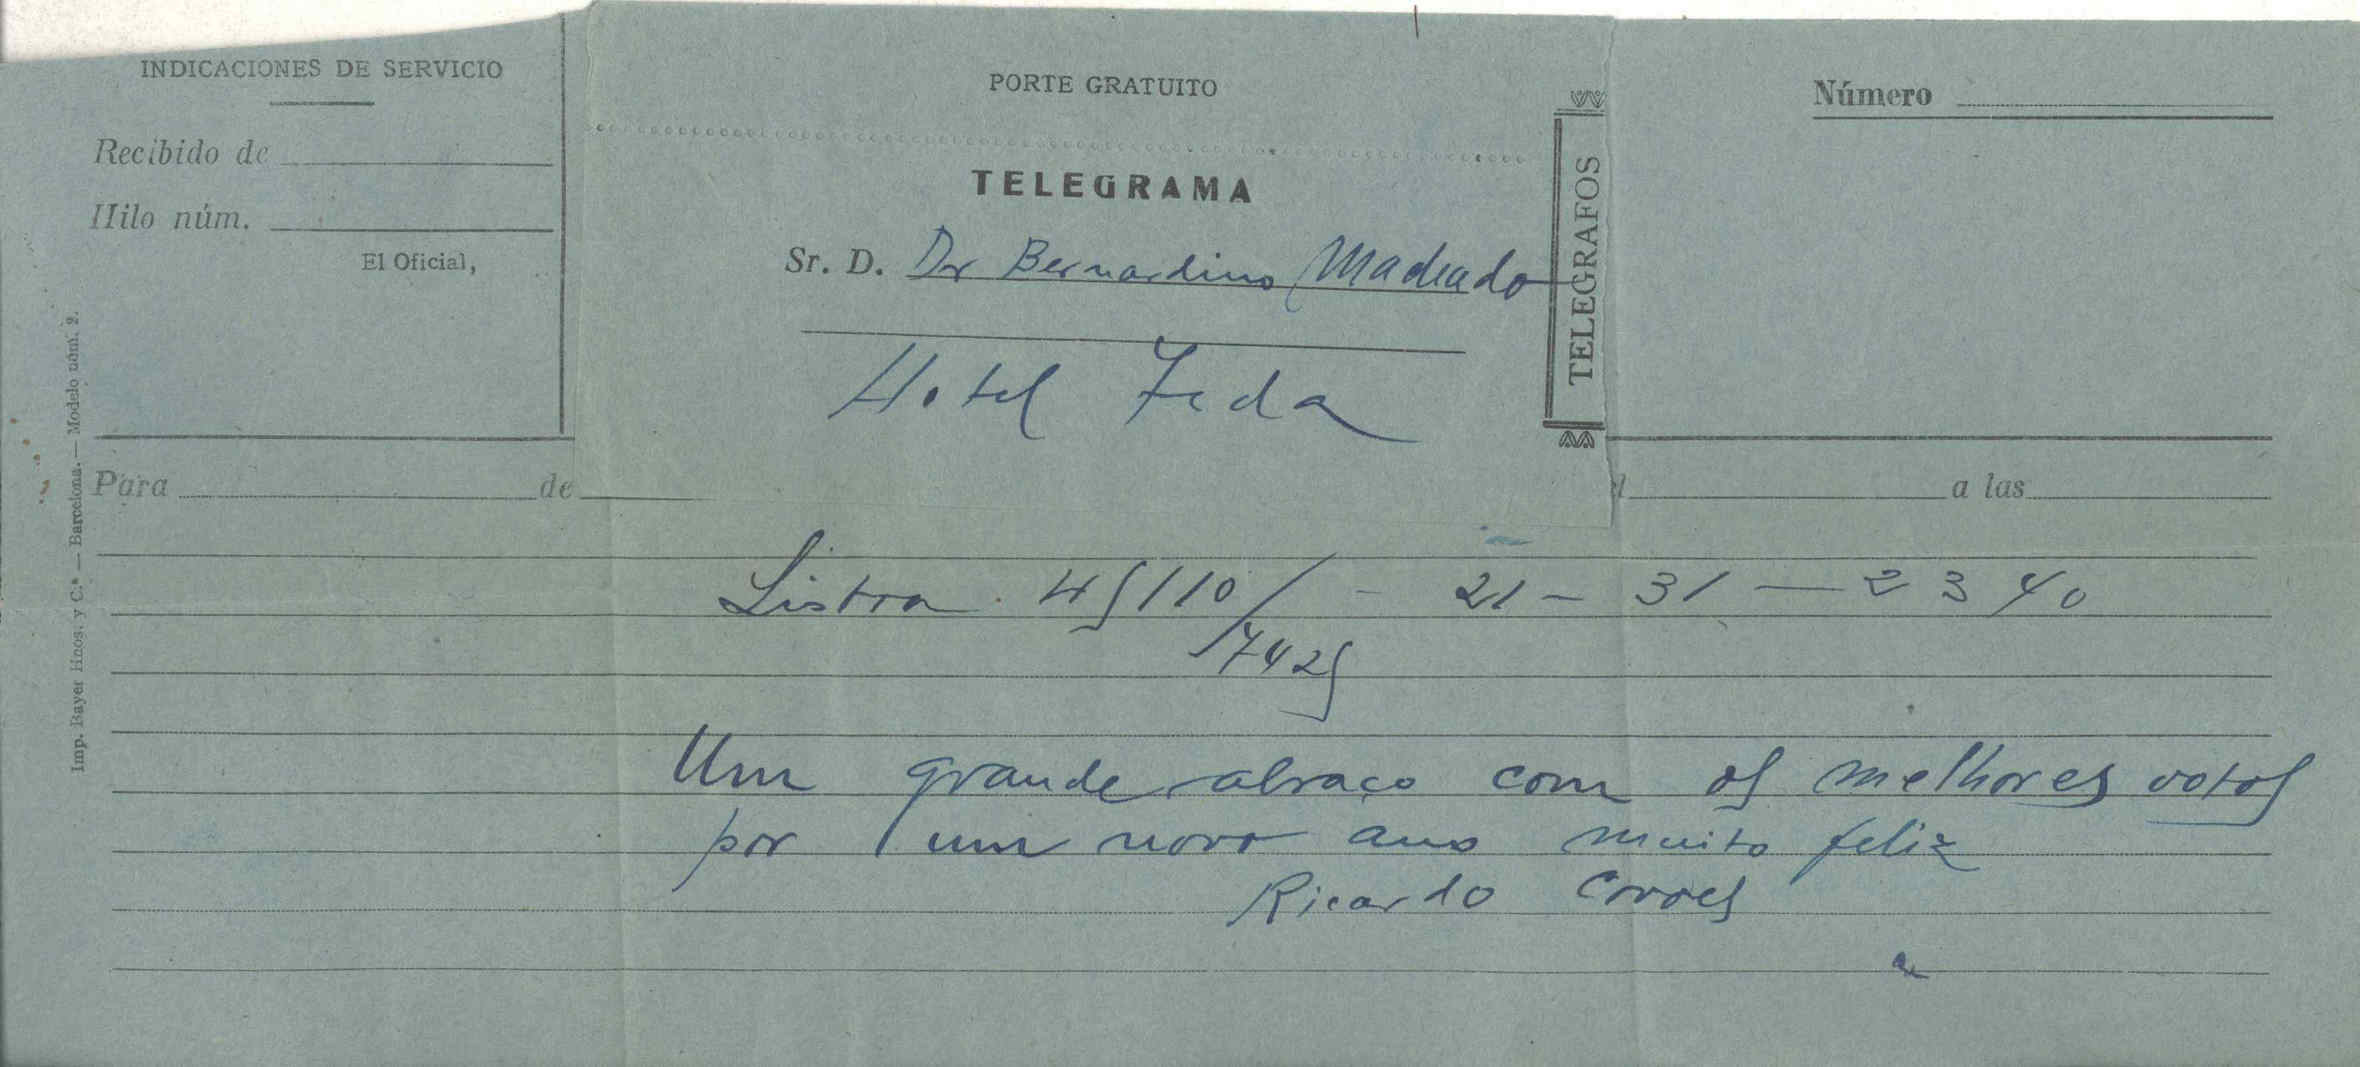 INDICACIONES DE SERVICIO
Recibido de
Hilo núm.
El Oficial,
PORTE GRATUITO
TELEGRAMA
Sr. D. Dr Bernardino Machado
Hotel
TELEGRAFOS
Número
Para de a las
Imp. Bayer Hnos. y C.ª — Barcelona. — Modelo núm. 2.
45110/ - 21 - 31 — 2340
7425
Um grande abraço com os melhores votos
por um novo ano muito feliz
Ricardo